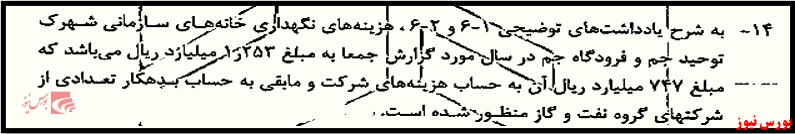 ۱۴- به شرح یادداشت‌های توضیحی ۱-۶ و ۲-۶، هزینه‌های نگهداری خانه‌های سازمانی شهرک
توحید جم و فرودگاه جم در سال مورد گزارش جمعا به مبلغ ۱٫۲۵۳ میلیارد ریال می‌باشد که
مبلغ ۷۴۷ میلیارد ریال آن به حساب هزینه‌های شرکت و مابقی به حساب بدهکار تعدادی از
شرکتهای گروه نفت و گاز منظور شده است.
بورس نیوز
بورس نیوز